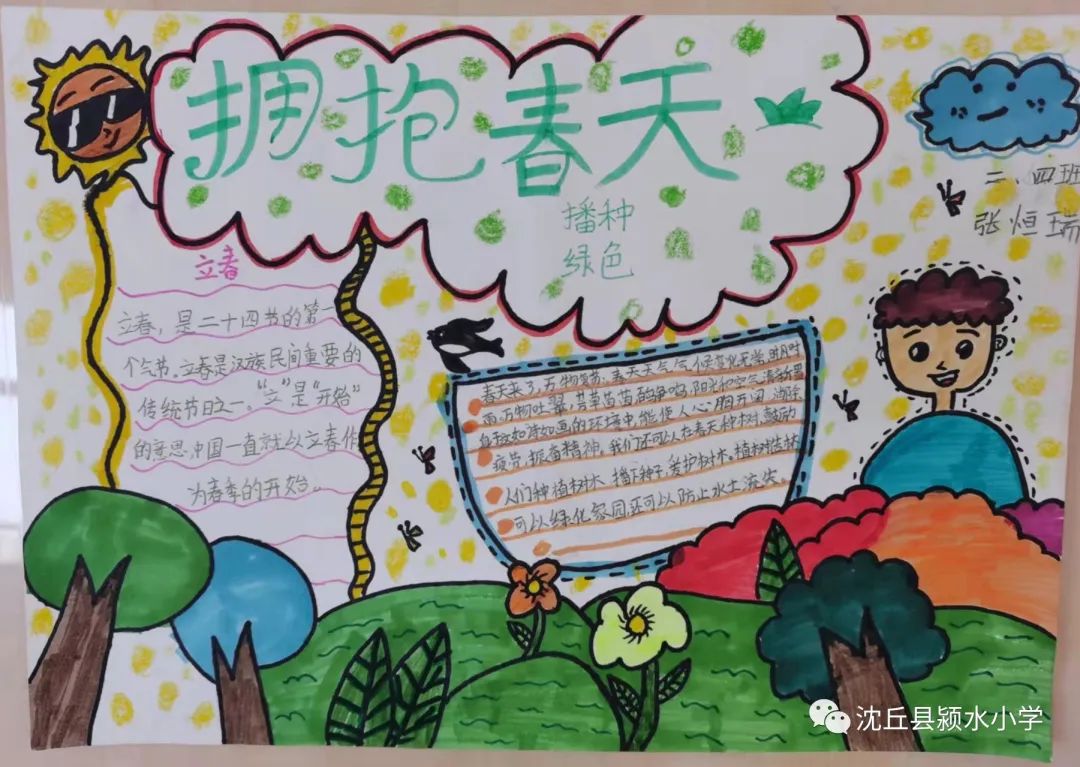 拥抱春天
播种
绿色
二、四班
张恒瑞
立春
立春，是二十四节的第一
个气节。立春是汉族民间重要的
传统节日之一。“立”是“开始”
的意思，中国一直就以立春作
为春季的开始。
春天来了，万物复苏，春天天气，气候变化无常，时风时
雨，万物吐翠，芳草
自在如诗如画的环境中，能使人心胸开阔，消除
疲劳，振奋精神，我们还可以在春天种树，鼓动
人们种植树木，播下种子，爱护树木。植树造林
可以绿化家园，还可以防止水土流失。
沈丘县颍水小学